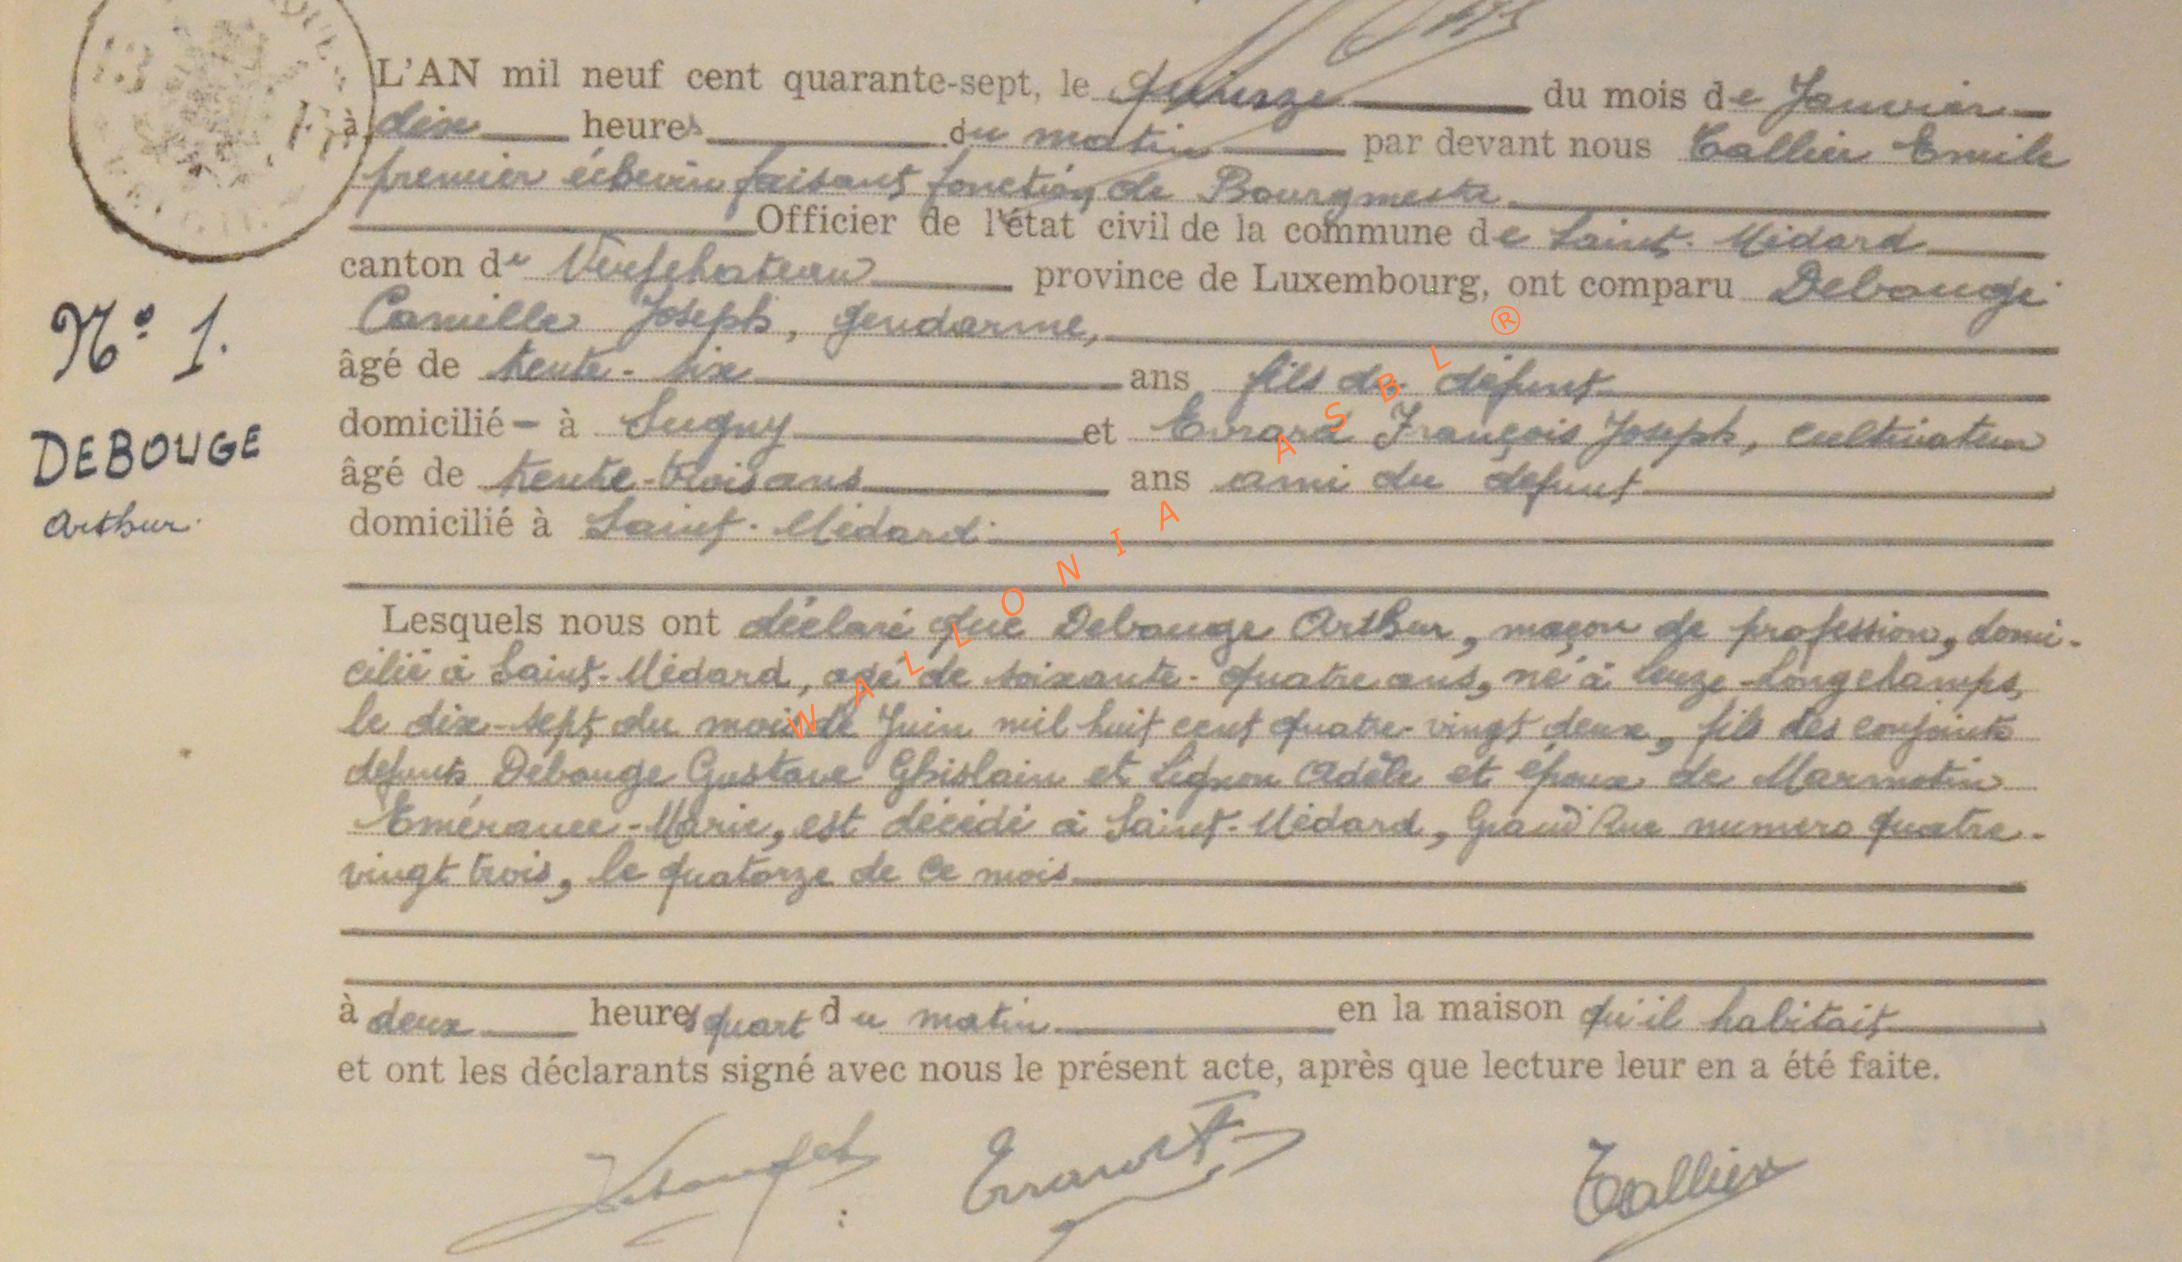 L'AN mil neuf cent quarante-sept, le quinze du mois de Janvier
à dix heures du matin par devant nous Tallier Emile
premier échevin faisant fonction de Bourgmestre
Officier de l'état civil de la commune de Saint-Médard
canton de Neufchateau province de Luxembourg, ont comparu Debouge
Camille Joseph, gendarme,
âgé de trente-six ans fils du défunt
domicilié - à Sugny et Evrard François Joseph, cultivateur
âgé de trente-trois ans ans ami du defunt
domicilié à Saint-Médard
N° 1.
DEBOUGE
Arthur.
Lesquels nous ont déclaré que Debouge Arthur, maçon de profession, domi-
cilié à Saint-Médard, agé de soixante-quatre ans, né à Leuze-Longchamps,
le dix-sept du mois de Juin mil huit cent quatre-vingt deux, fils des conjoints
defunts Debouge Gustave Ghislain et Lignon Adèle et époux de Marmotin
Emérance-Marie, est décédé à Saint-Médard, Grand Rue numero quatre-
vingt trois, le quatorze de ce mois
à deux heures quart du matin en la maison qu'il habitait
et ont les déclarants signé avec nous le présent acte, après que lecture leur en a été faite.
Evrard F
Tallier
WALLONIA ASBL ®